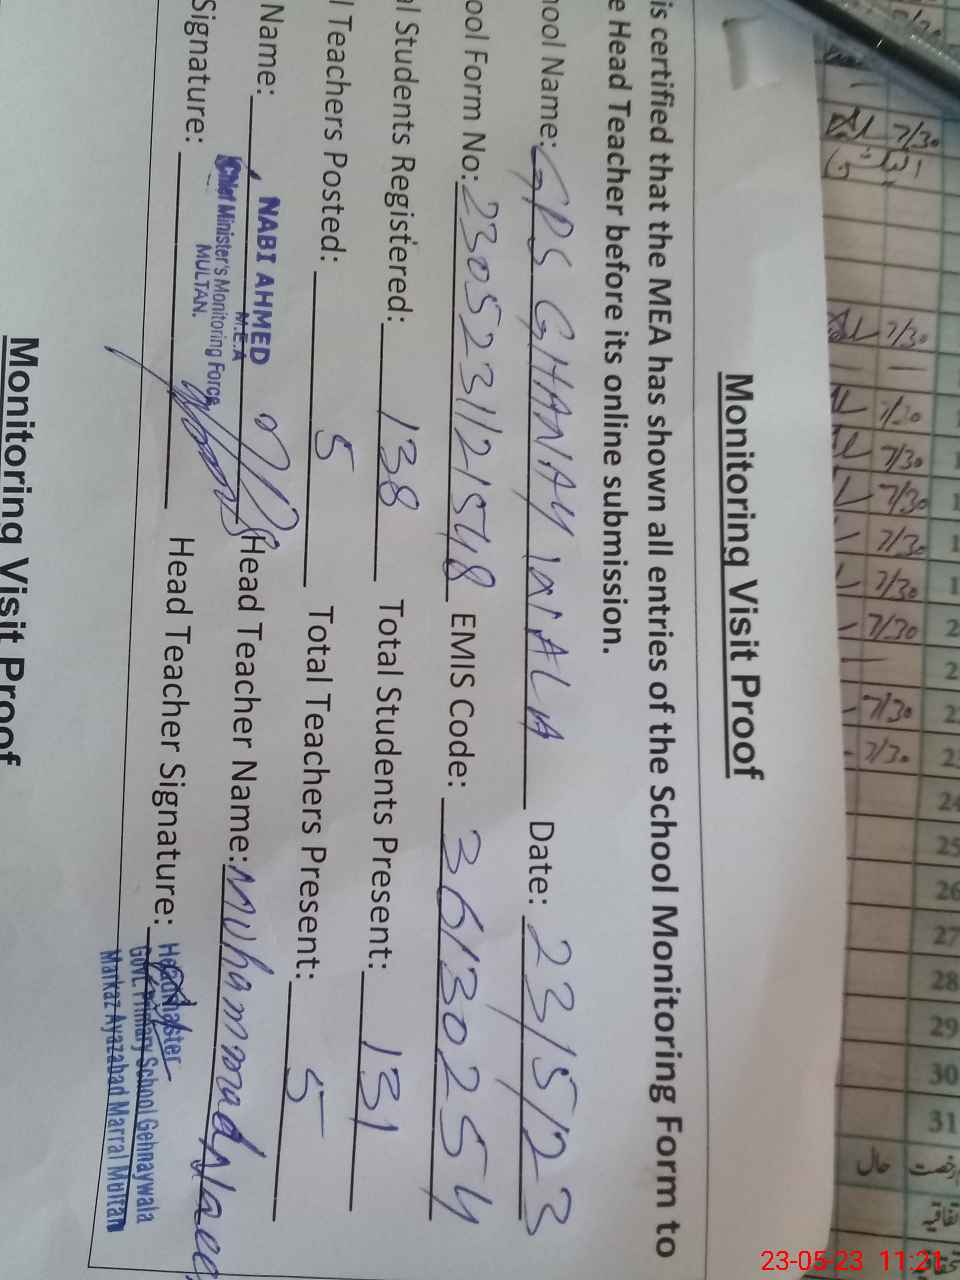 Monitoring Visit Proof
is certified that the MEA has shown all entries of the School Monitoring Form to
e Head Teacher before its online submission.
hool Name: GPS GHANAY WALA Date: 23/5/23
ool Form No: 2305231121548 EMIS Code: 36130254
l Students Registered: 138 Total Students Present: 131
l Teachers Posted: 5 Total Teachers Present: 5
Name: NABI AHMED Head Teacher Name: Muhammad
M.E.A
Chief Minister's Monitoring Force
MULTAN.
Signature: Head Teacher Signature:
Headmaster
Govt. Primary School Gehnaywala
Markaz Ayazabad Marral Multan
Monitoring Visit Proof
7/30
7/30
7/30
7/30
7/30
7/30
7/30
7/30
7/30
7/30
24
25
26
27
28
29
30
31
حال
23-05-23 11:21